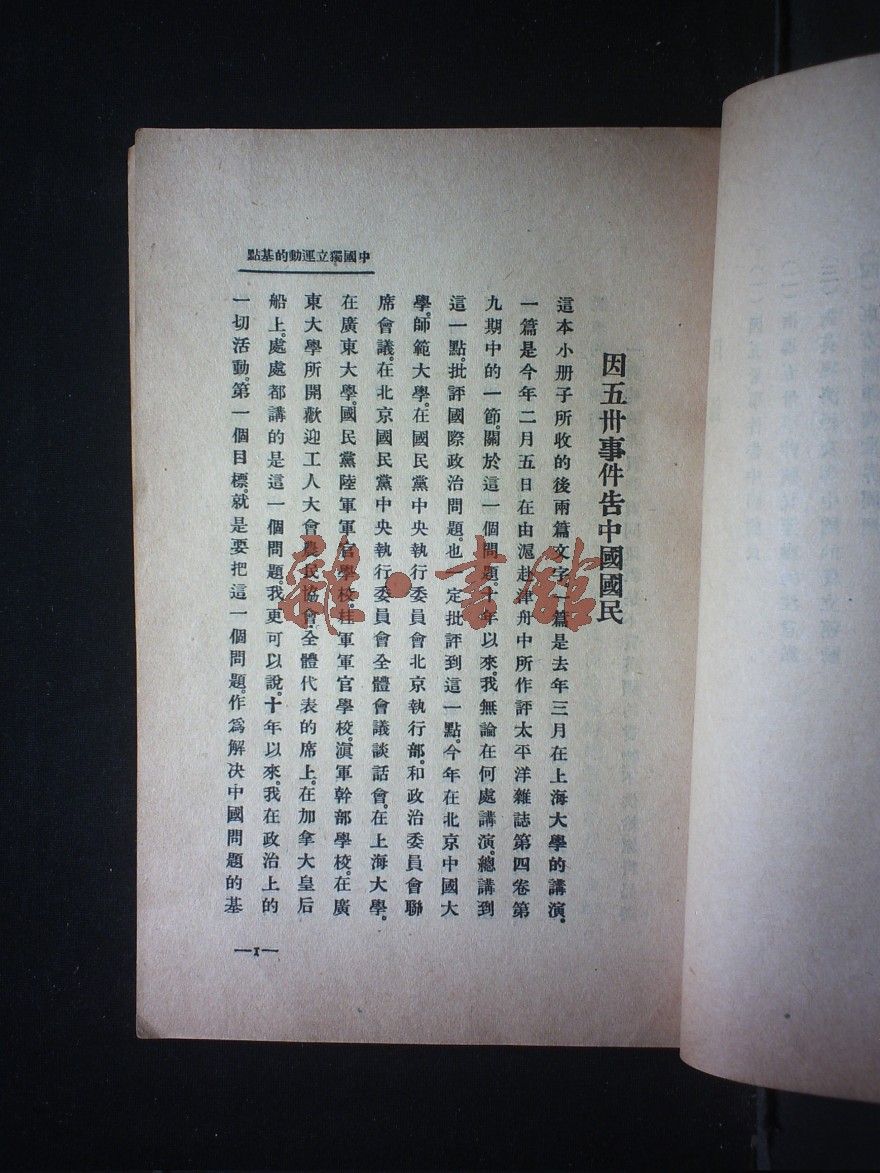 中國獨立運動的基點
因五卅事件告中國國民
這本小册子所收的後兩篇文字。一篇是去年三月在上海大學的講演。
一篇是今年二月五日在由滬赴津舟中所作評太平洋雜誌第四卷第
九期中的一節。關於這一個問題。十年以來。我無論在何處講演。總講到
這一點。批評國際政治問題。也一定批評到這一點。今年在北京中國大
學。師範大學。在國民黨中央執行委員會北京執行部。和政治委員會聯
席會議。在北京國民黨中央執行委員會全體會議談話會。在上海大學。
在廣東大學。國民黨陸軍軍官學校。桂軍軍官學校。滇軍幹部學校。在廣
東大學所開歡迎工人大會農民協會全體代表的席上。在加拿大皇后
船上。處處都講的是這一個問題。我更可以說。十年以來。我在政治上的
一切活動。第一個目標。就是要把這一個問題。作爲解决中國問題的基
—1—
雜·書館